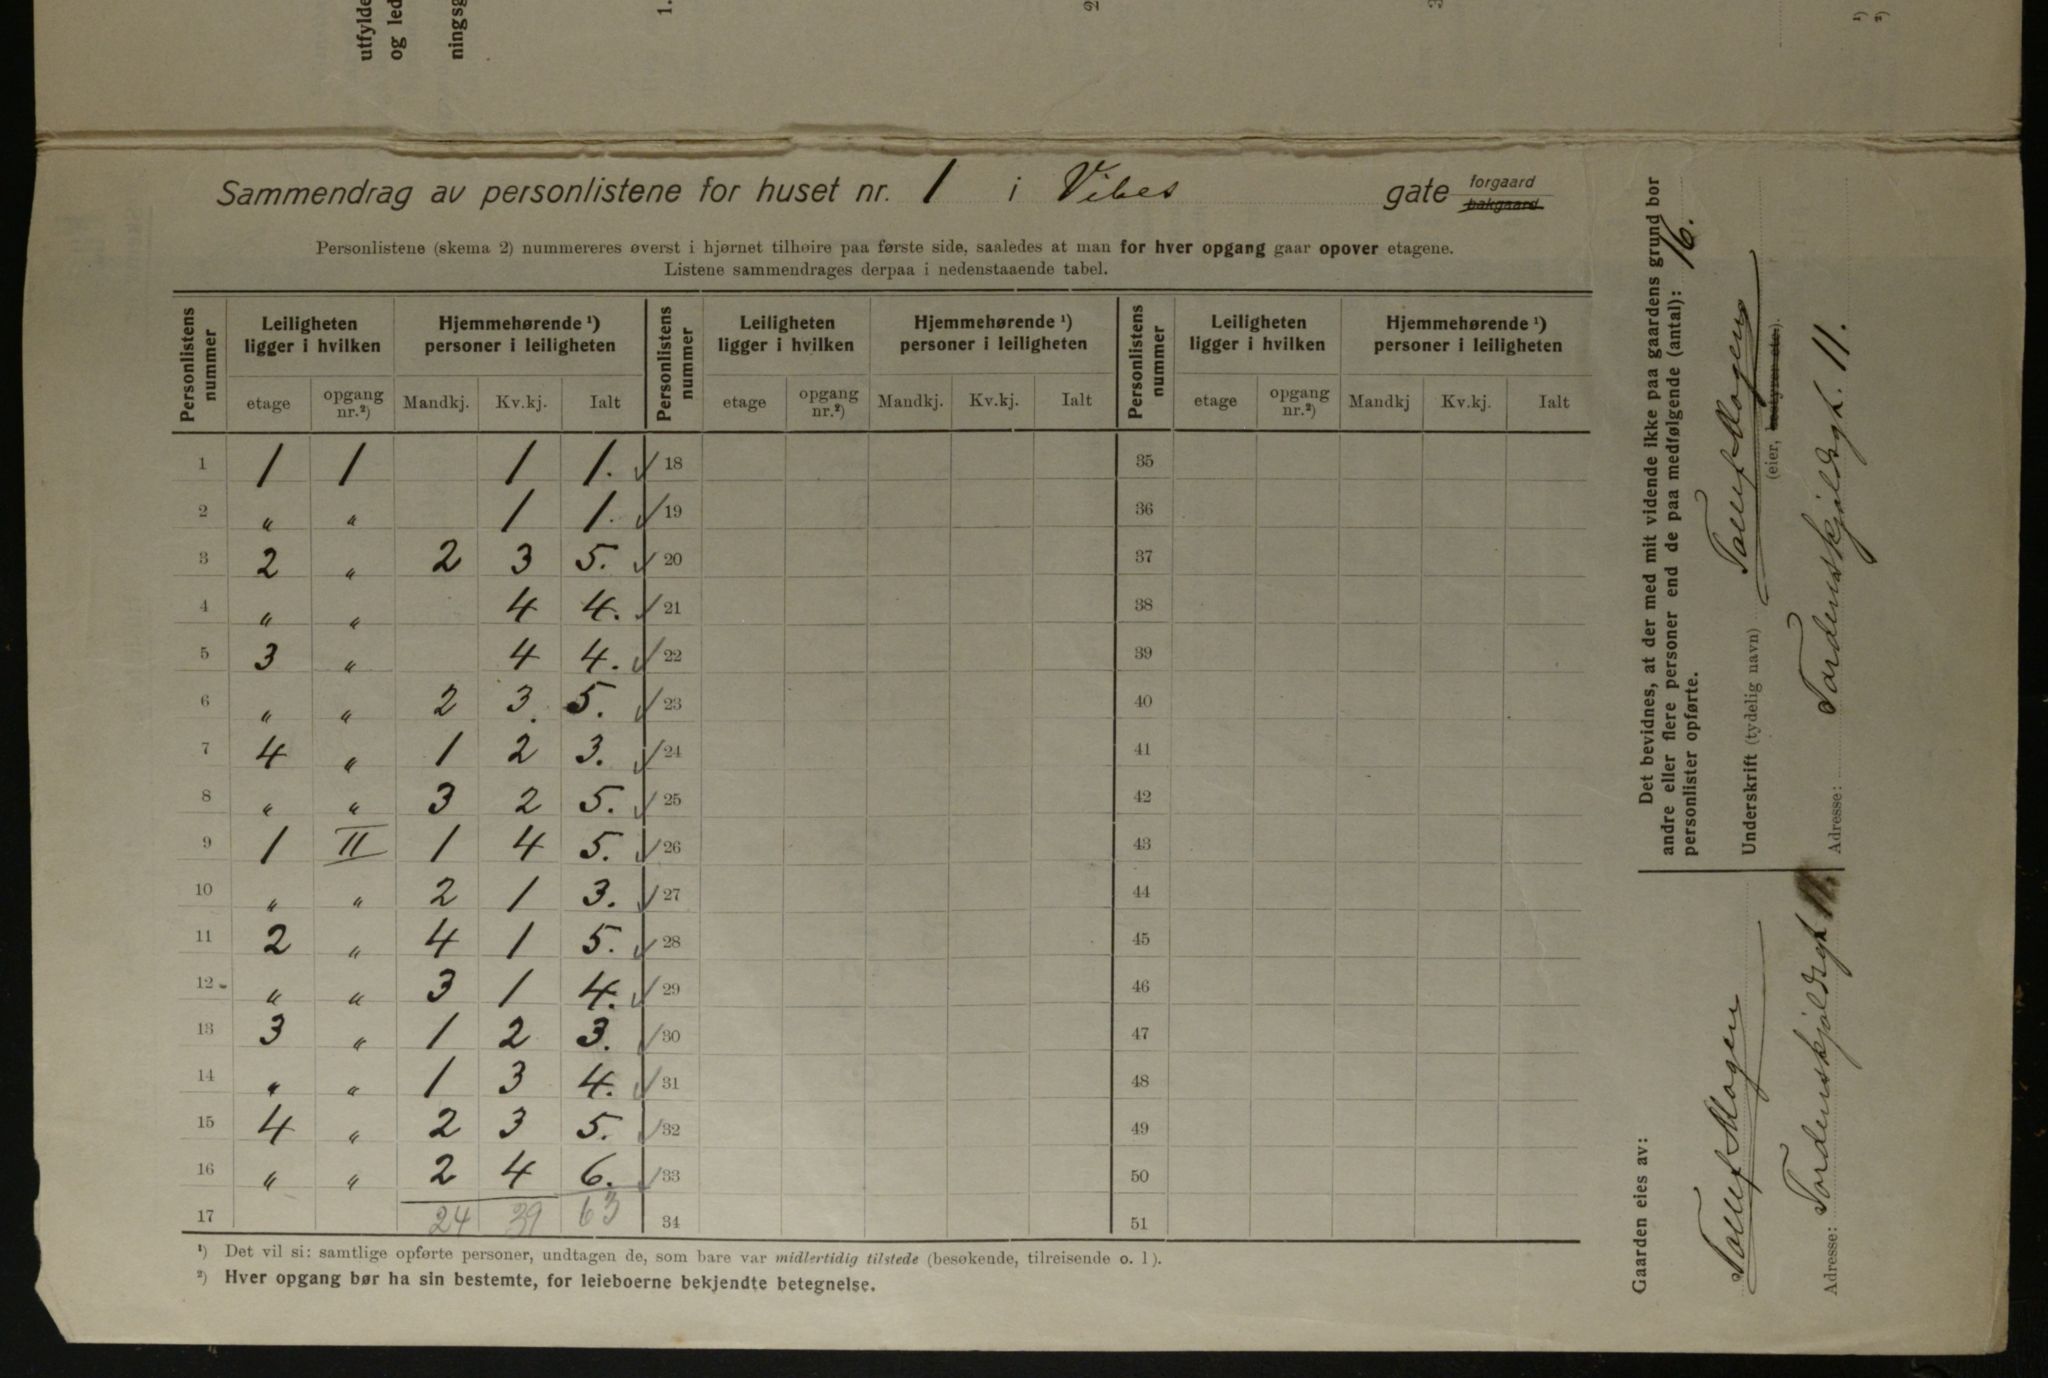 utfylde
og led
ningsg
1.
2
3
¹)
²)
Sammendrag av personlistene for huset nr. 1 i Vibes gate forgaard
bakgaard
Personlistene (skema 2) nummereres øverst i hjørnet tilhøire paa første side, saaledes at man for hver opgang gaar opover etagene.
Listene sammendrages derpaa i nedenstaaende tabel.
Personlistens nummer | Leiligheten ligger i hvilken | Hjemmehørende ¹) personer i leiligheten | Personlistens nummer | Leiligheten ligger i hvilken | Hjemmehørende ¹) personer i leiligheten | Personlistens nummer | Leiligheten ligger i hvilken | Hjemmehørende ¹) personer i leiligheten
etage | opgang nr.²) | Mandkj. | Kv.kj. | Ialt | etage | opgang nr.²) | Mandkj. | Kv.kj. | Ialt | etage | opgang nr.²) | Mandkj | Kv.kj. | Ialt
1 | 1 | 1 | | 1 | 1. ✓ | 18 | 35
2 | „ | „ | | 1 | 1. ✓ | 19 | 36
3 | 2 | „ | 2 | 3 | 5. ✓ | 20 | 37
4 | „ | „ | | 4 | 4. ✓ | 21 | 38
5 | 3 | „ | | 4 | 4. ✓ | 22 | 39
6 | „ | „ | 2 | 3. | 5. ✓ | 23 | 40
7 | 4 | „ | 1 | 2 | 3. ✓ | 24 | 41
8 | „ | „ | 3 | 2 | 5. ✓ | 25 | 42
9 | 1 | II | 1 | 4 | 5. ✓ | 26 | 43
10 | „ | „ | 2 | 1 | 3. ✓ | 27 | 44
11 | 2 | „ | 4 | 1 | 5. ✓ | 28 | 45
12 | „ | „ | 3 | 1 | 4. ✓ | 29 | 46
13 | 3 | „ | 1 | 2 | 3. ✓ | 30 | 47
14 | „ | „ | 1 | 3 | 4. ✓ | 31 | 48
15 | 4 | „ | 2 | 3 | 5. ✓ | 32 | 49
16 | „ | „ | 2 | 4 | 6. ✓ | 33 | 50
17 | | | 24 | 39 | 63 | 34 | 51
¹) Det vil si: samtlige opførte personer, undtagen de, som bare var midlertidig tilstede (besøkende, tilreisende o. l).
²) Hver opgang bør ha sin bestemte, for leieboerne bekjendte betegnelse.
Det bevidnes, at der med mit vidende ikke paa gaardens grund bor
andre eller flere personer end de paa medfølgende (antal): 16.
personlister opførte.
Underskrift (tydelig navn) Mogen
(eier, bestyrer etc).
Adresse: Tordenskjoldsgt. 11.
Gaarden eies av:
Mogen
Adresse: Tordenskjoldsgt. 11.